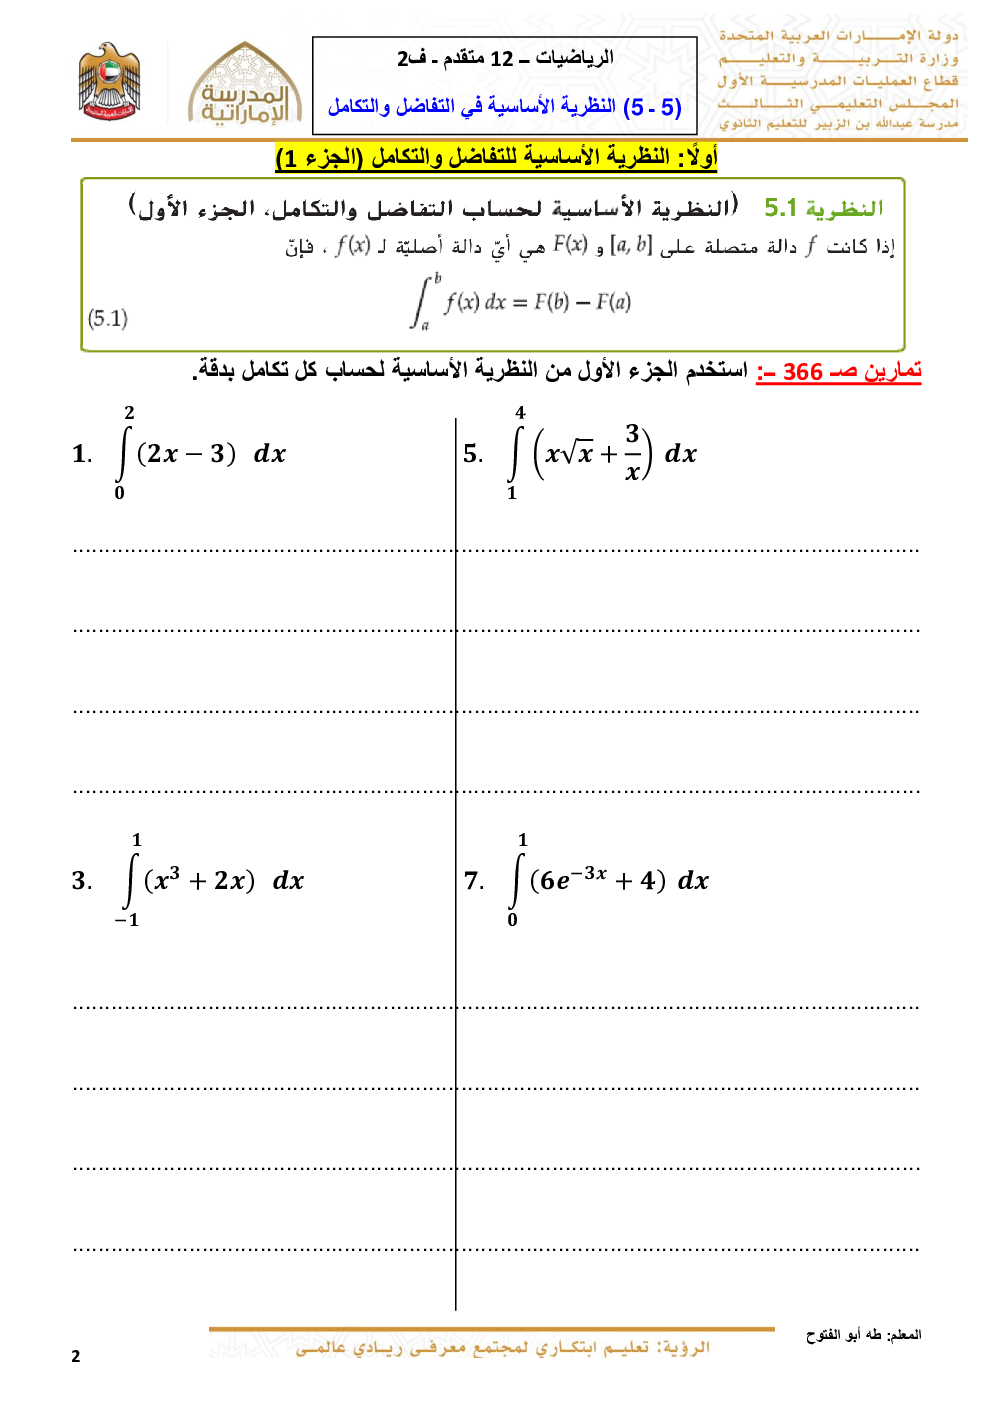 دولة الإمـــــارات العربية المتحدة
وزارة التـربيـــــة والتعليـــــم
قطاع العمليات المدرسيـــة الأول
المجـلس التعليمـي الثـــالـــث
مدرسة عبدالله بن الزبير للتعليم الثانوي
المدرسة
الإماراتية
الرياضيات – 12 متقدم - ف2
(5 - 5) النظرية الأساسية في التفاضل والتكامل
أولًا: النظرية الأساسية للتفاضل والتكامل (الجزء 1)
النظرية 5.1 (النظرية الأساسية لحساب التفاضل والتكامل، الجزء الأول)
إذا كانت f دالة متصلة على [a, b] و F(x) هي أيّ دالة أصليّة لـ f(x) ، فإنّ
∫_a^b f(x) dx = F(b) − F(a) (5.1)
تمارين صـ 366 ــ: استخدم الجزء الأول من النظرية الأساسية لحساب كل تكامل بدقة.
1. ∫_0^2 (2x − 3) dx
5. ∫_1^4 (x√x + 3/x) dx
3. ∫_{−1}^1 (x³ + 2x) dx
7. ∫_0^1 (6e^{−3x} + 4) dx
المعلم: طه أبو الفتوح
الرؤية: تعليم ابتكاري لمجتمع معرفي ريادي عالمي
2